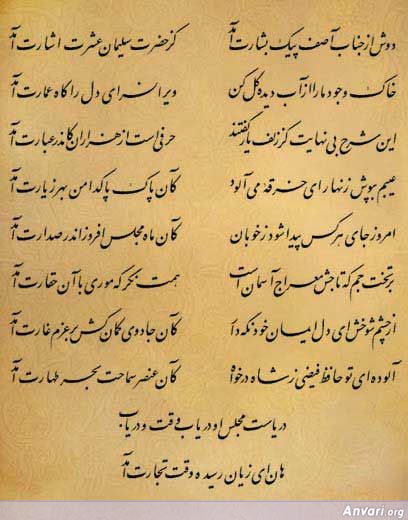 دوش از جناب آصف پیک بشارت آمد کز حضرت سلیمان عشرت اشارت آمد
خاک وجود ما را از آب دیده گل کن ویرانسرای دل را گاه عمارت آمد
این شرح بی نهایت کز زلف یار گفتند حرفی است از هزاران کاندر عبارت آمد
عیبم بپوش زنهار ای خرقه می آلود کآن پاک پاکدامن بهر زیارت آمد
امروز جای هر کس پیدا شود ز خوبان کآن ماه مجلس افروز اندر صدارت آمد
بر تخت جم که تاجش معراج آسمان است همت نگر که موری با آن حقارت آمد
از چشم شوخش ای دل ایمان خود نگه دار کآن جادوی کمان کش بر عزم غارت آمد
آلوده ای تو حافظ فیضی ز شاه درخواه کآن عنصر سماحت بهر طهارت آمد
دریاست مجلس او دریاب وقت و دریاب
هان ای زیان رسیده وقت تجارت آمد
Anvari.org